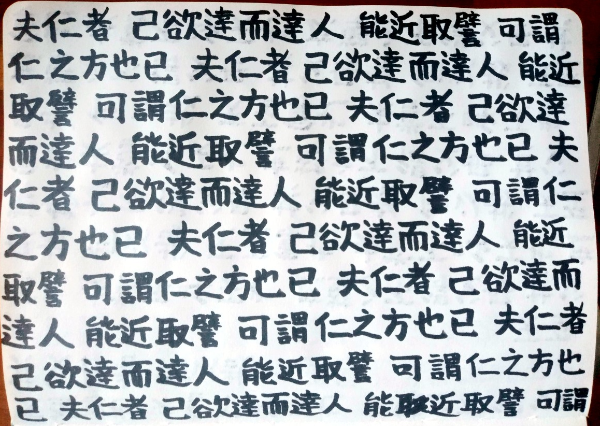 夫仁者 己欲達而達人 能近取譬 可謂
仁之方也已 夫仁者 己欲達而達人 能近
取譬 可謂仁之方也已 夫仁者 己欲達
而達人 能近取譬 可謂仁之方也已 夫
仁者 己欲達而達人 能近取譬 可謂仁
之方也已 夫仁者 己欲達而達人 能近
取譬 可謂仁之方也已 夫仁者 己欲達而
達人 能近取譬 可謂仁之方也已 夫仁者
己欲達而達人 能近取譬 可謂仁之方也
已 夫仁者 己欲達而達人 能近取譬 可謂